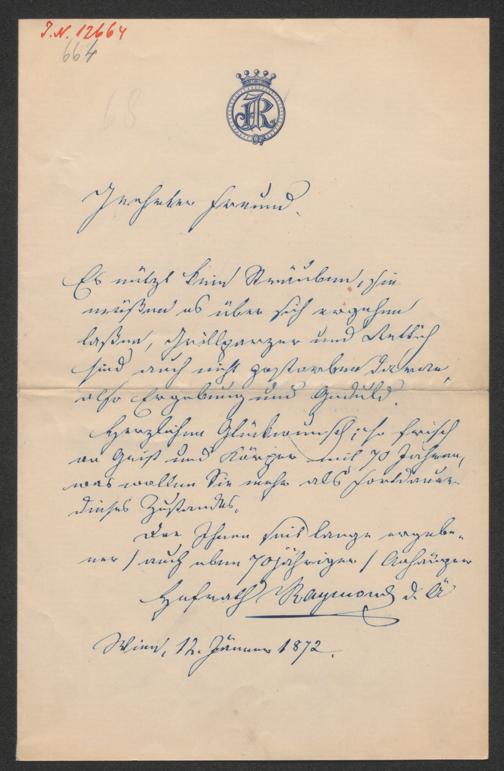 J.N. 12664
664
68
JR
Geehrter Freund.
Es nützt kein Sträuben, Sie
müßen es über sich ergehen
laßen, Grillparzer und Rettich
sind auch nicht gestorben daran,
also Ergebung und Geduld.
Herzlichen Glückwunsch, so frisch
an Geist und Körper mit 70 Jahren,
was wollen Sie mehr als Fortdauer
dieses Zustandes.
Der Ihnen seit lange ergebe-
ner / auch eben 70jähriger / Anhänger
Hofrath Raymond d. Ä
Wien, 12. Jänner 1872.